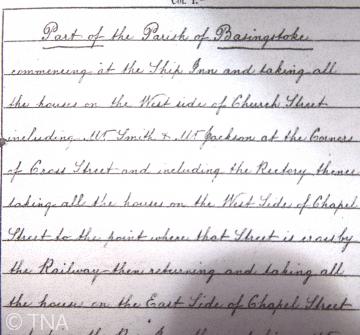 Col. 1.
Part of the Parish of Basingstoke
commencing at the Ship Inn and taking all
the houses on the West side of Church Street
including Mr Smith & Mr Jackson at the Corners
of Cross Street and including the Rectory thence
taking all the houses on the West Side of Chapel
Street to the point where that Street is cross by
the Railway then returning and taking all
the house on the East Side of Chapel Street
© TNA